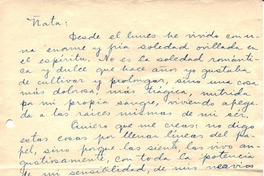 Nata:
Desde el lunes he vivido con u-
na enorme y fría soledad ovillada en
el espíritu. No es la soledad románti-
ca y dulce que hace años yo gustaba
de cultivar y prolongar, sino una cosa
más dolorosa, más trágica, nutrida
por mi propia sangre, viviendo apega-
da a las raíces mismas de mi ser.
Quiero que me creas: no digo
estas cosas por llenar líneas del pa-
pel, sino porque las siento, las vivo an-
gustiosamente, con toda la potencia
de mi sensibilidad, de mis nervios